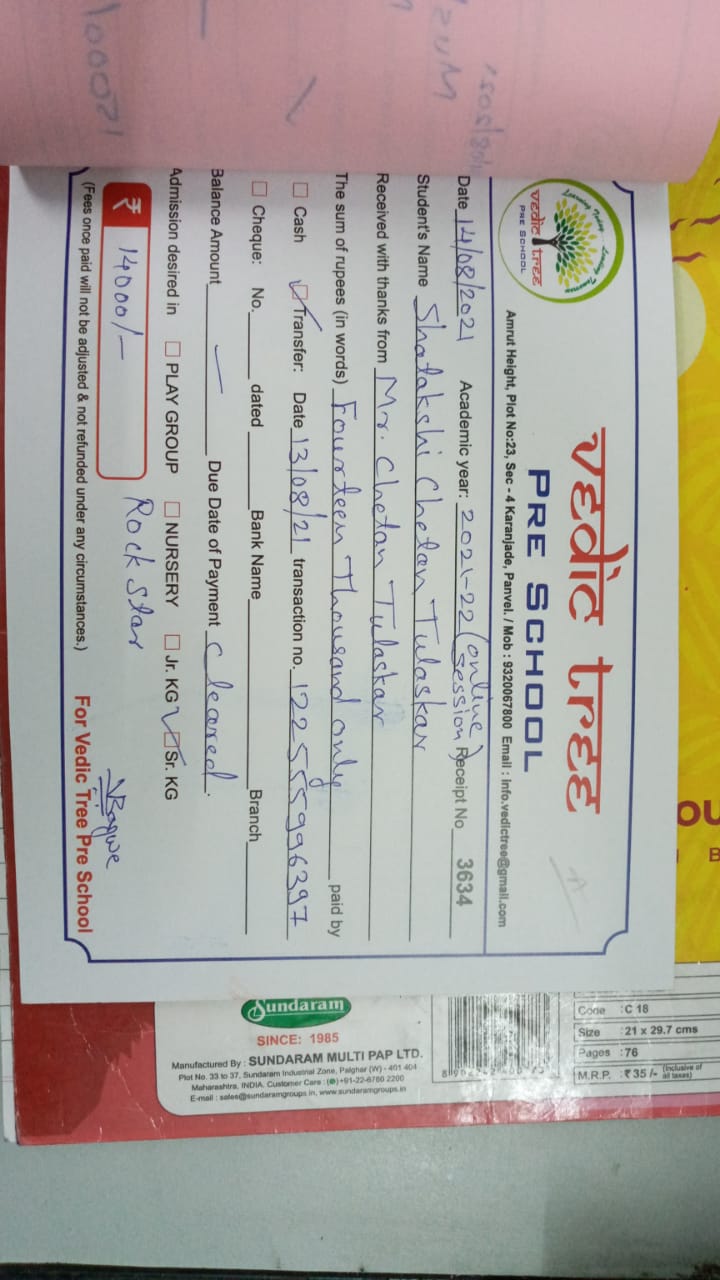 vedic tree
PRE SCHOOL
vedic tree
PRE SCHOOL
Amrut Height, Plot No:23, Sec - 4 Karanjade, Panvel. / Mob : 9320067800 Email : info.vedictree@gmail.com
Date 14/08/2021 Academic year: 2021-22 (online session) Receipt No 3634
Student's Name Shalakshi Chetan Tulaskar
Received with thanks from Mr. Chetan Tulaskar
The sum of rupees (in words) Fourteen Thousand only paid by
Cash Transfer: Date 13/08/21 transaction no. 122555996397
Cheque: No. dated Bank Name Branch
Balance Amount — Due Date of Payment Cleared.
Admission desired in PLAY GROUP NURSERY Jr. KG Sr. KG
₹ 14000/- Rock Star
(Fees once paid will not be adjusted & not refunded under any circumstances.) For Vedic Tree Pre School
Sundaram
SINCE: 1985
Manufactured By : SUNDARAM MULTI PAP LTD.
Plot No. 33 to 37, Sundaram Industrial Zone, Palghar (W) - 401 404
Maharashtra, INDIA. Customer Care : +91-22-6760 2200
E-mail : sales@sundaramgroups.in, www.sundaramgroups.in
Code : C 18
Size : 21 x 29.7 cms
Pages : 76
M.R.P. : ₹ 35 /- (Inclusive of all taxes)
OU
B